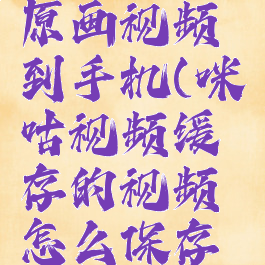 原画视频
到手机(咪
咕视频缓
存的视频
怎么保存